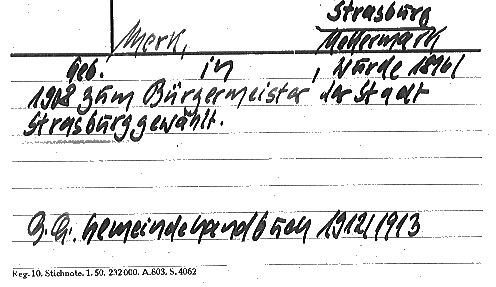 Strasburg
Merk, Uckermark
geb. in , wurde 1896/
1908 zum Bürgermeister der Stadt
Strasburg gewählt.
Gemeindehandbuch 1912/1913
Reg. 10. Stichnote. 1. 50. 232000. A.603. S. 4062